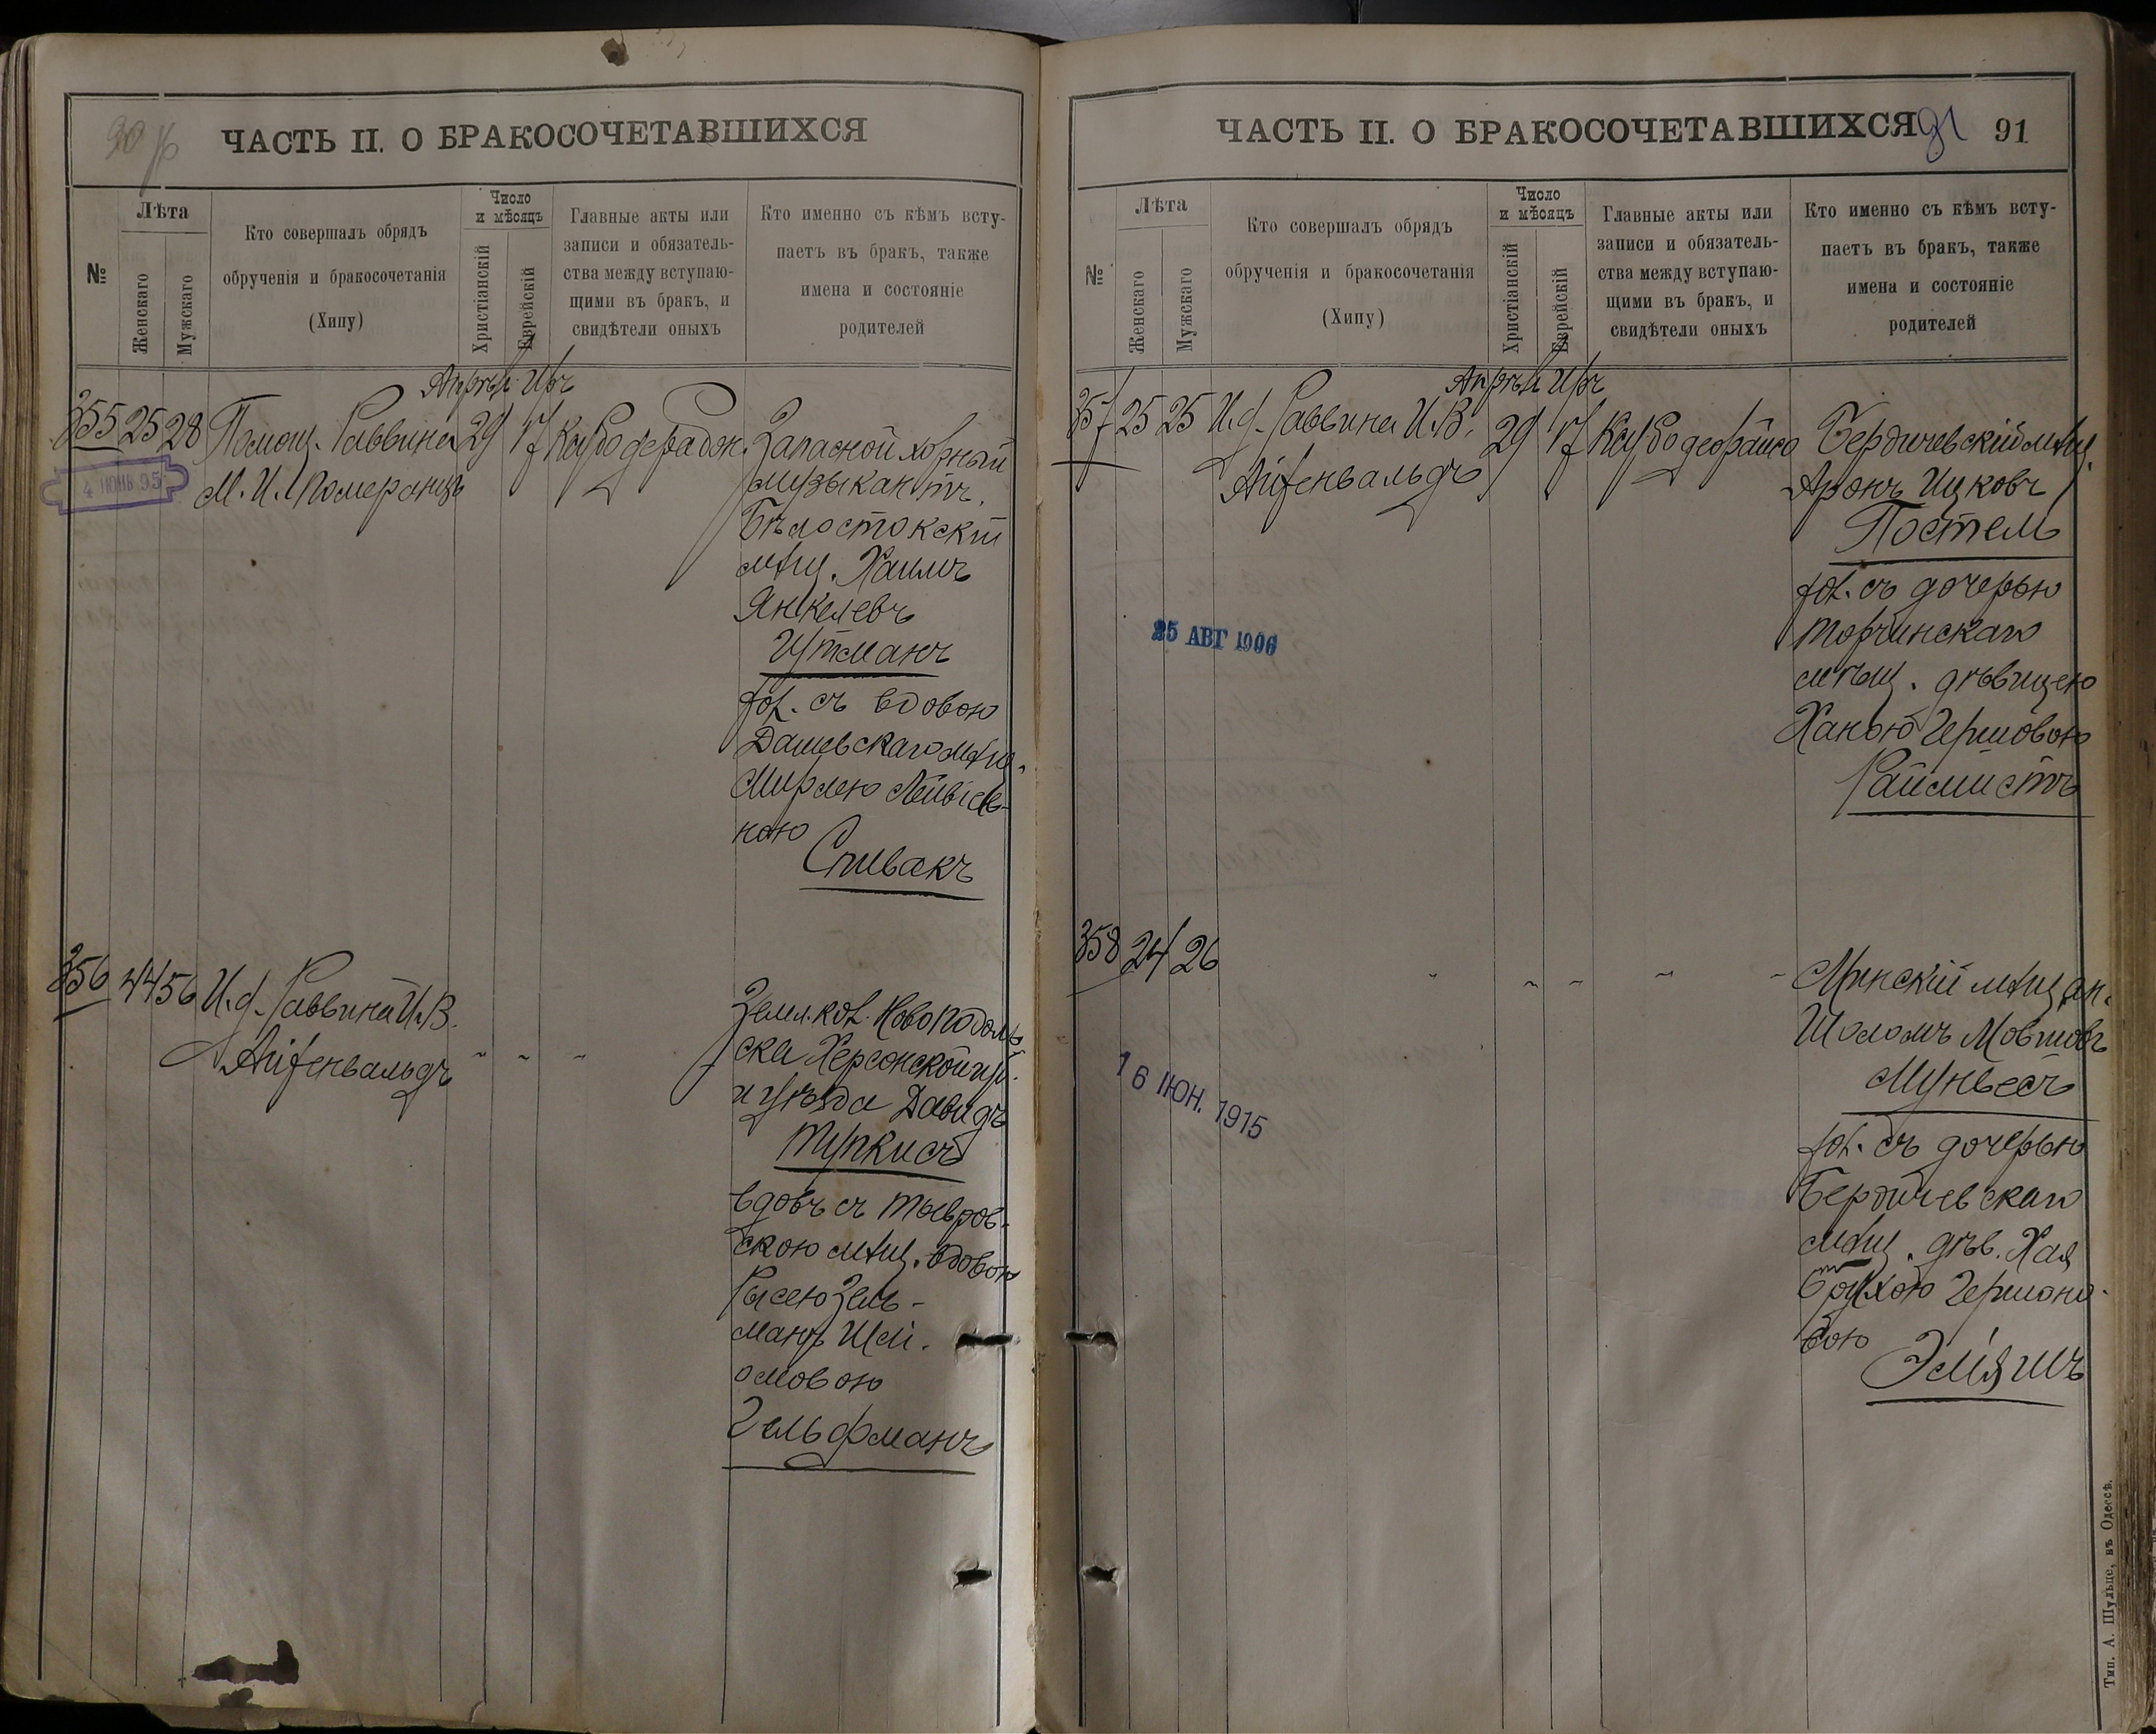 ЧАСТЬ II. О БРАКОСОЧЕТАВШИХСЯ
№
Лѣта
Женскаго
Мужскаго
Кто совершалъ обрядъ
обрученія и бракосочетанія
(Хипу)
Число
и мѣсяцъ
Христіанскій
Еврейскій
Главные акты или
записи и обязатель-
ства между вступаю-
щими въ бракъ, и
свидѣтели оныхъ
Кто именно съ кѣмъ всту-
паетъ въ бракъ, также
имена и состояніе
родителей
355 25 28 Помощ. Раввина 29 17
М. И. Померанцъ
4 ІЮНЬ 95
Запасной хорный
музыкантъ,
Бѣлостокскій
мѣщ. Хаимъ
Янкелевъ
Гутманъ
хол. съ вдовою
Дашевскаго мѣщ.
Мирлею Лейвіев-
ною
Спивакъ
356 44 56 И. д. Раввина И. В.
Айзенвальдъ
Земл. кол. Новоподоль-
ска Херсонской губ.
и уѣзда Давидъ
Тупкисъ
вдовъ съ Тывров-
скою мѣщ. вдовою
Рысею Зель-
манъ Шлі-
омовою
Гельфманъ
ЧАСТЬ II. О БРАКОСОЧЕТАВШИХСЯ 91 91
№
Лѣта
Женскаго
Мужскаго
Кто совершалъ обрядъ
обрученія и бракосочетанія
(Хипу)
Число
и мѣсяцъ
Христіанскій
Еврейскій
Главные акты или
записи и обязатель-
ства между вступаю-
щими въ бракъ, и
свидѣтели оныхъ
Кто именно съ кѣмъ всту-
паетъ въ бракъ, также
имена и состояніе
родителей
357 25 25 И. д. Раввина И. В. 29 17
Айзенвальдъ
25 АВГ 1906
Бердичевскій мѣщ.
Аронъ Ицковъ
Постель
хол. съ дочерью
Торчинскаго
мѣщ. дѣвицею
Ханою Гершовою
Раймистъ
358 24 26
16 ІЮН. 1915
Минскій мѣщан.
Шоломъ Мовшовъ
Мунвесъ
хол. съ дочерью
Бердичевскаго
мѣщ. дѣв. Хая
Брухою Гершоно-
вою
Эліяшъ
Тип. А. Шульце, въ Одессѣ.